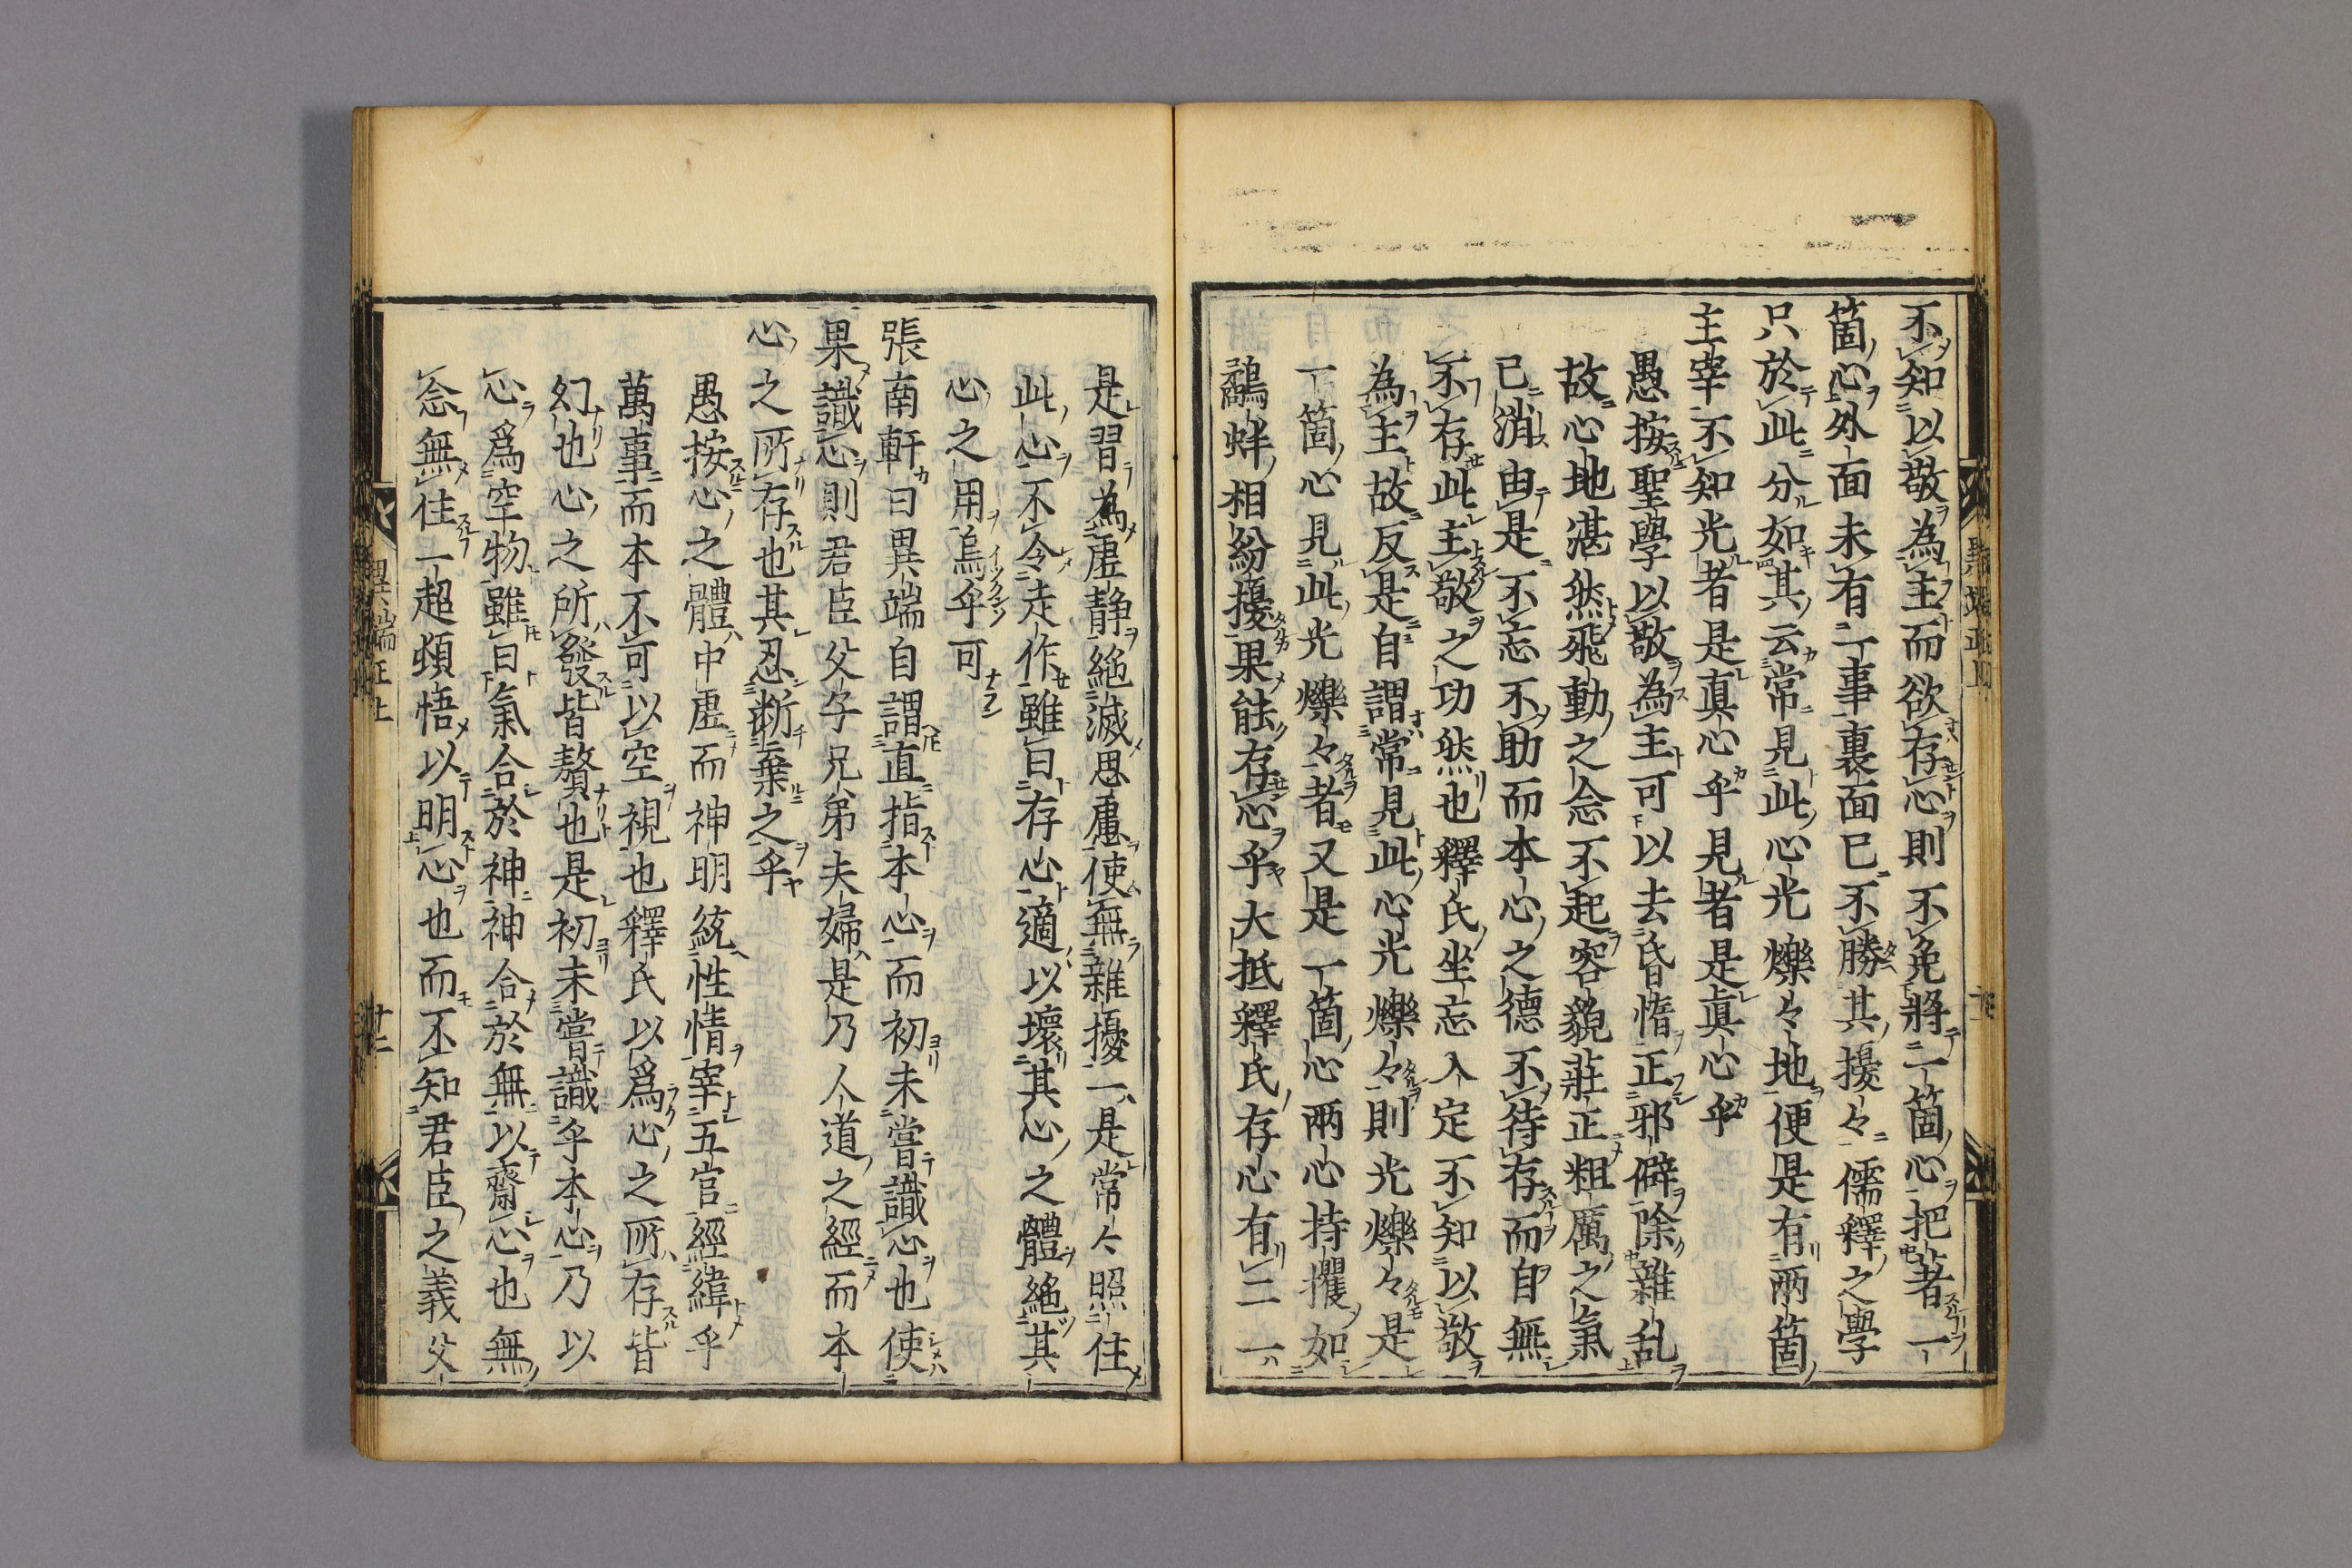 不知以敬為主而欲存心則不免將一箇心把著一
箇心外面未有一事裏面已不勝其擾々儒釋之學
只於此分如其云常見此心光爍々地便是有兩箇
主宰不知光者是真心乎見者是真心乎
愚按聖學以敬為主可以去昏惰正邪僻除雜乱
故心地湛然飛動之念不起容貌莊正粗厲之氣
已消由是不忘不助而本心之德不待存而自無
不存此主敬之功然也釋氏坐忘入定不知以敬
為主故反是自謂常見此心光爍々則光爍々是
一箇心見此光爍々者又是一箇心兩心持攫如
鷸蚌相紛擾果能存心乎大抵釋氏存心有二一
是習為虛靜絕滅思慮使無雜擾一是常々照住
此心不令走作雖曰存心適以壞其心之體絕其
心之用烏乎可
張南軒曰異端自謂直指本心而初未嘗識心也使
果識心則君臣父子兄弟夫婦是乃人道之經而本
心之所存也其忍斷棄之乎
愚按心之體中虛而神明統性情宰五官經緯乎
萬事而本不可以空視也釋氏以爲心之所存皆
幻也心之所發皆贅也是初未嘗識乎本心乃以
心爲空物雖曰氣合於神神合於無以齋心也無
念無住一超頓悟以明心也而不知君臣之義父
異端正上
十二